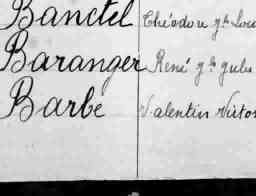 Banctel Théodore gh Lou
Baranger René gh Jules
Barbe Valentin Victo